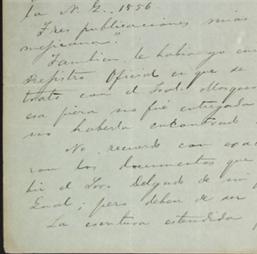 la N. 2. 1856
Tres publicaciones mias
mejicana".
Tambien le habia yo en
Registro Oficial en que se
trató con el Sod. Marque
esa pieza no fué entregada
no haberla encontrado
No recuerdo con exac
ron los documentos que
bií el Sor. Delgado de mi p
Gual; pero deben de ser
La escritura estendida p